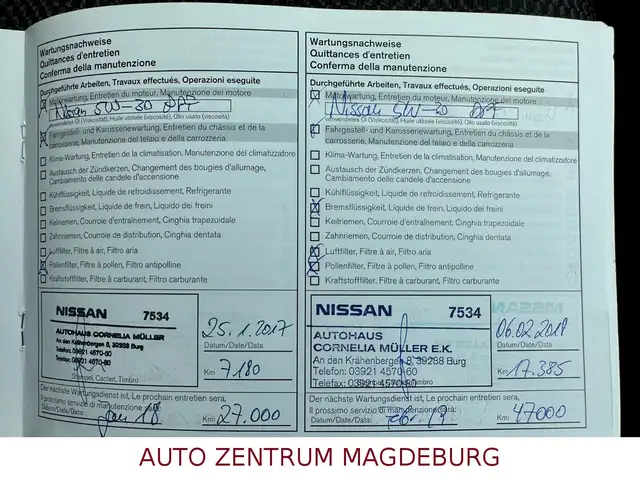 Wartungsnachweise
Quittances d'entretien
Conferma della manutenzione
Durchgeführte Arbeiten, Travaux effectués, Operazioni eseguite
Motorwartung, Entretien du moteur, Manutenzione del motore
Nissan 5W-30 DPF
verwendetes Öl (Viskosität), Huile utilisée (viscosité), Olio usato (viscosità)
Fahrgestell- und Karosseriewartung, Entretien du châssis et de la
carrosserie, Manutenzione del telaio e della carrozzeria
Klima-Wartung, Entretien de la climatisation, Manutenzione del climatizzatore
Austausch der Zündkerzen, Changement des bougies d'allumage,
Cambiamento delle candele d'accensione
Kühlflüssigkeit, Liquide de refroidissement, Refrigerante
Bremsflüssigkeit, Liquide de frein, Liquido dei freini
Keilriemen, Courroie d'entraînement, Cinghia trapezoidale
Zahnriemen, Courroie de distribution, Cinghia dentata
Luftfilter, Filtre à air, Filtro aria
Pollenfilter, Filtre à pollen, Filtro antipolline
Kraftstofffilter, Filtre à carburant, Filtro carburante
NISSAN 7534
AUTOHAUS CORNELIA MÜLLER
An den Krähenbergen 8, 39288 Burg
Telefon: 03921 4570-60
Telefax: 03921 4570-61
Stempel, Cachet, Timbro
25.1.2017
Datum/Date/Data
Km 7180
Der nächste Wartungsdienst ist, Le prochain entretien sera,
Il prossimo servizio di manutenzione sarà:
Datum/Date/Data: Jan 18 Km: 27.000
Wartungsnachweise
Quittances d'entretien
Conferma della manutenzione
Durchgeführte Arbeiten, Travaux effectués, Operazioni eseguite
Motorwartung, Entretien du moteur, Manutenzione del motore
Nissan 5W-30 DPF
verwendetes Öl (Viskosität), Huile utilisée (viscosité), Olio usato (viscosità)
Fahrgestell- und Karosseriewartung, Entretien du châssis et de la
carrosserie, Manutenzione del telaio e della carrozzeria
Klima-Wartung, Entretien de la climatisation, Manutenzione del climatizzatore
Austausch der Zündkerzen, Changement des bougies d'allumage,
Cambiamento delle candele d'accensione
Kühlflüssigkeit, Liquide de refroidissement, Refrigerante
Bremsflüssigkeit, Liquide de frein, Liquido dei freini
Keilriemen, Courroie d'entraînement, Cinghia trapezoidale
Zahnriemen, Courroie de distribution, Cinghia dentata
Luftfilter, Filtre à air, Filtro aria
Pollenfilter, Filtre à pollen, Filtro antipolline
Kraftstofffilter, Filtre à carburant, Filtro carburante
NISSAN 7534
AUTOHAUS
CORNELIA MÜLLER E.K.
An den Krähenbergen 8, 39288 Burg
Telefon: 03921 4570-60
Telefax: 03921 4570-61
06.02.2018
Datum/Date/Data
Km 17.385
Der nächste Wartungsdienst ist, Le prochain entretien sera,
Il prossimo servizio di manutenzione sarà:
Datum/Date/Data: Febr. 19 Km: 47000
AUTO ZENTRUM MAGDEBURG